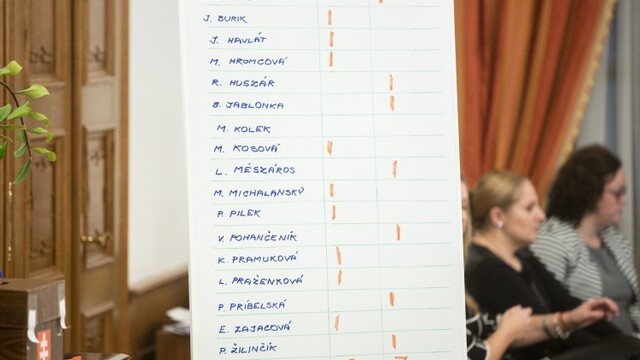 J. BURIK
J. HAVLÁT
M. HROMCOVÁ
R. HUSZÁR
B. JABLONKA
M. KOLEK
M. KOSOVÁ
L. MÉSZÁROS
M. MICHALANSKÝ
P. PILEK
V. POHANČENÍK
K. PRAMUKOVÁ
L. PRAŽENKOVÁ
P. PRIBELSKÁ
E. ZAJACOVÁ
P. ŽILINČÍK